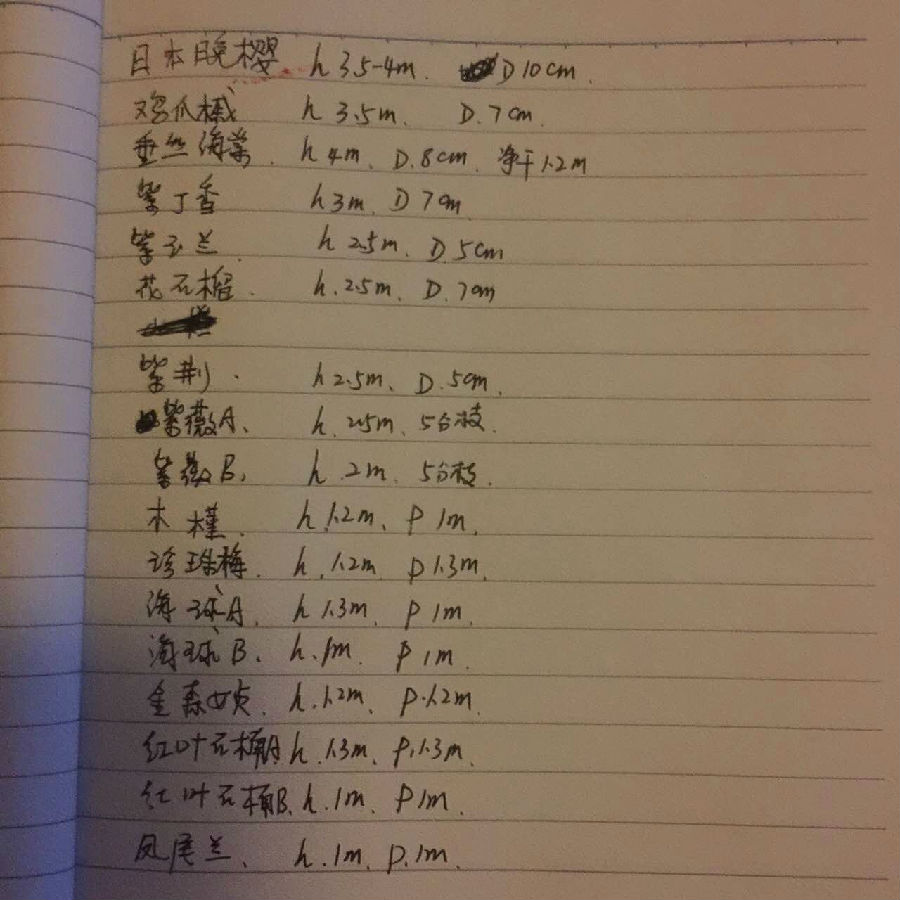 日本晚樱 h 3.5-4m. D 10cm.
鸡爪槭 h 3.5m. D. 7cm.
垂丝海棠. h 4m. D. 8cm. 净干1.2m
紫丁香 h 3m. D 7cm
紫玉兰. h 2.5m. D. 5cm
花石榴. h. 2.5m. D. 7cm
紫荆. h 2.5m. D. 5cm.
紫薇A. h. 2.5m. 5分枝.
紫薇B. h. 2m. 5分枝.
木槿. h 1.2m. P 1m.
珍珠梅. h. 1.2m. P 1.3m.
海球A. h 1.3m. P 1m.
海球B. h. 1m. P 1m.
金森女贞. h. 1.2m. P. 1.2m.
红叶石楠A h. 1.3m. P. 1.3m.
红叶石楠B. h. 1m. P 1m.
凤尾兰. h. 1m. P. 1m.